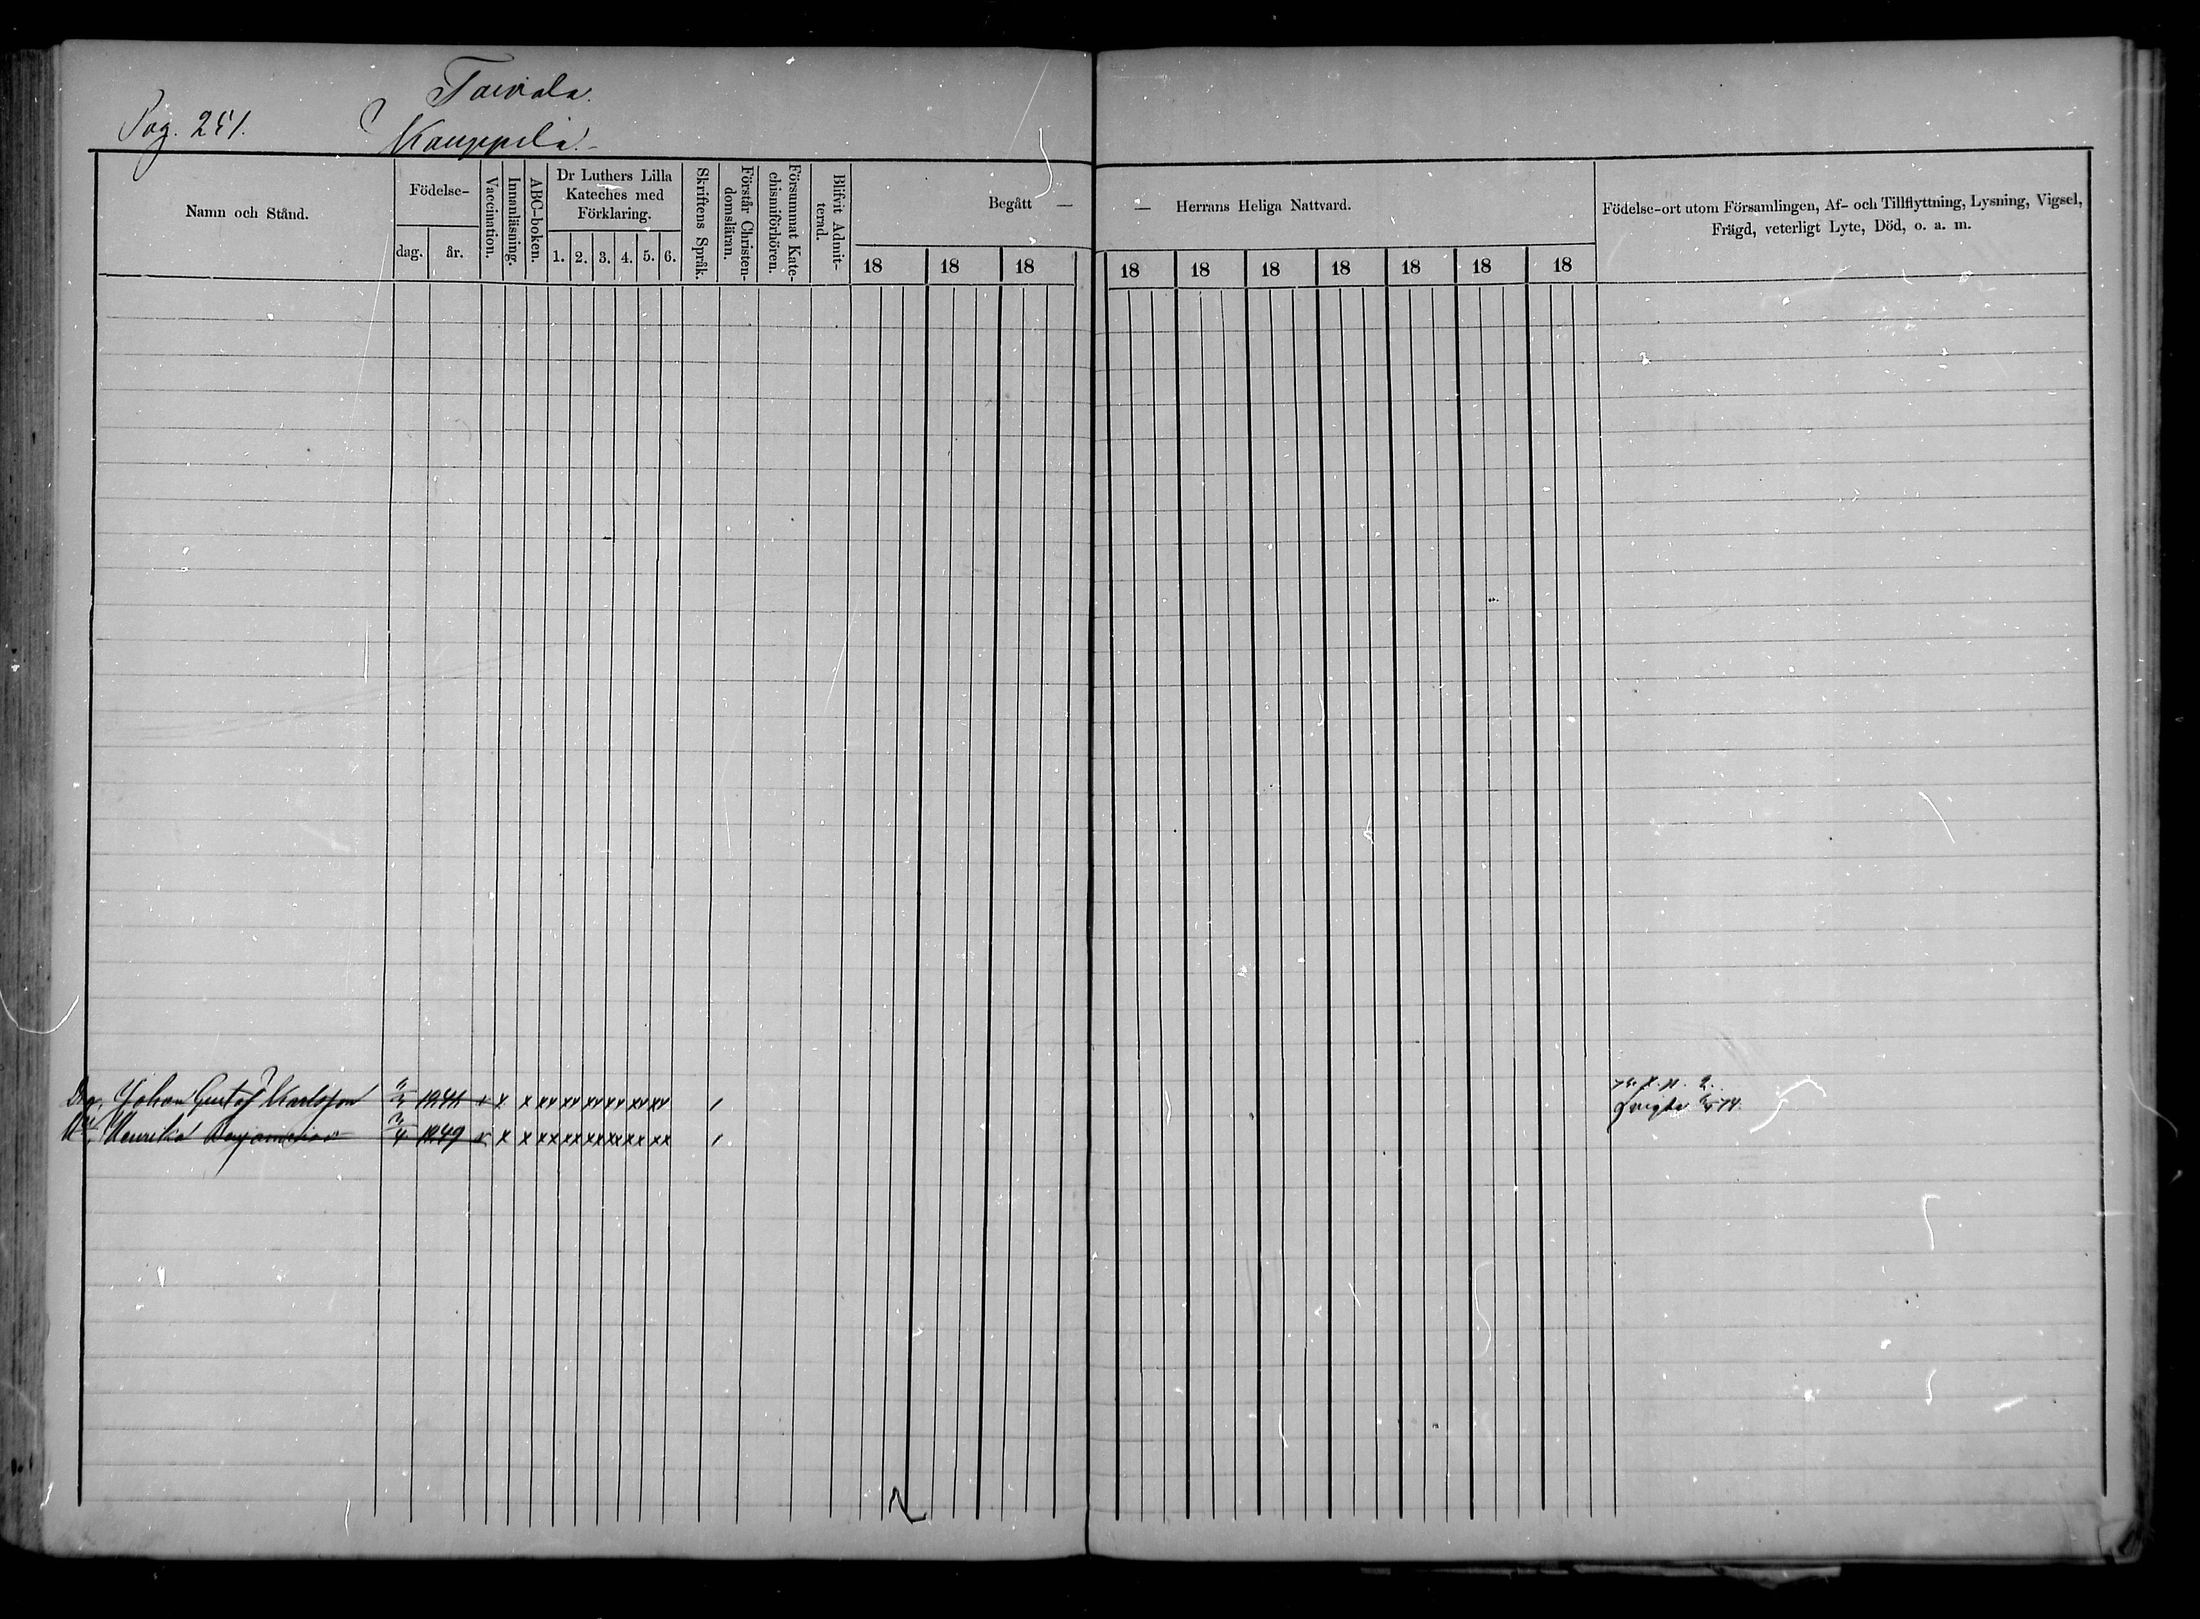 Pag. 251.
Toivola.
Kauppila.
Namn och Stånd.
Födelse-
dag.
år.
Vaccination.
Innanläsning.
ABC-boken.
Dr Luthers Lilla
Kateches med
Förklaring.
1. 2. 3. 4. 5. 6.
Skriftens Språk.
Förstår Christen-
domsläran.
Försummat Kate-
chismiförhören.
Blifvit Admit-
terad.
Begått —
18 18 18
— Herrans Heliga Nattvard.
18 18 18 18 18 18 18
Födelse-ort utom Församlingen, Af- och Tillflyttning, Lysning, Vigsel,
Frägd, veterligt Lyte, Död, o. a. m.
Johan Gustaf Karlsson 1841 x x x xv xv xv xv xv xv /
Henrika Benjaminss 1849 x x x xx xx xx xx xx xx /